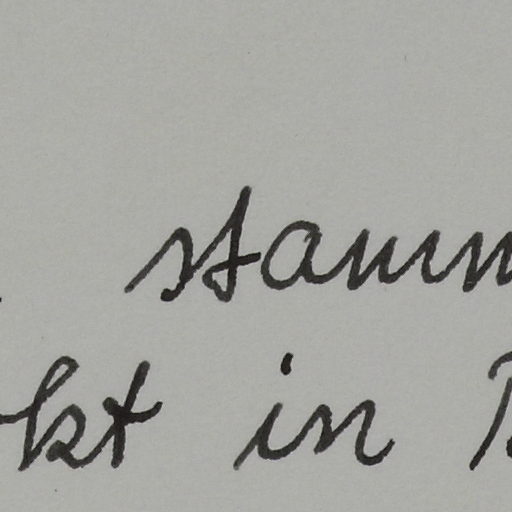 stamm
kt in B